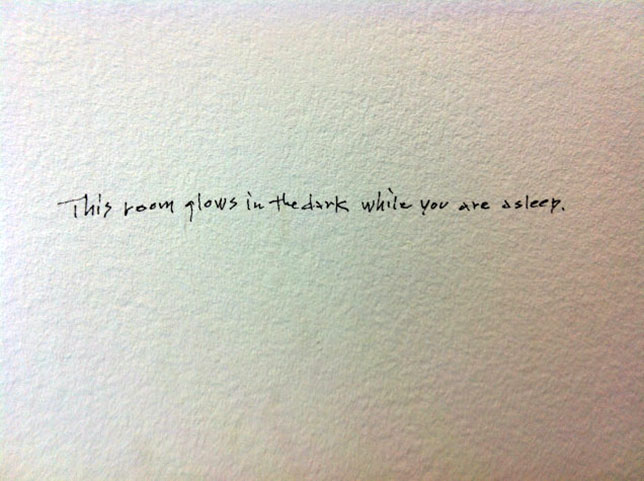 This room glows in the dark while you are asleep.